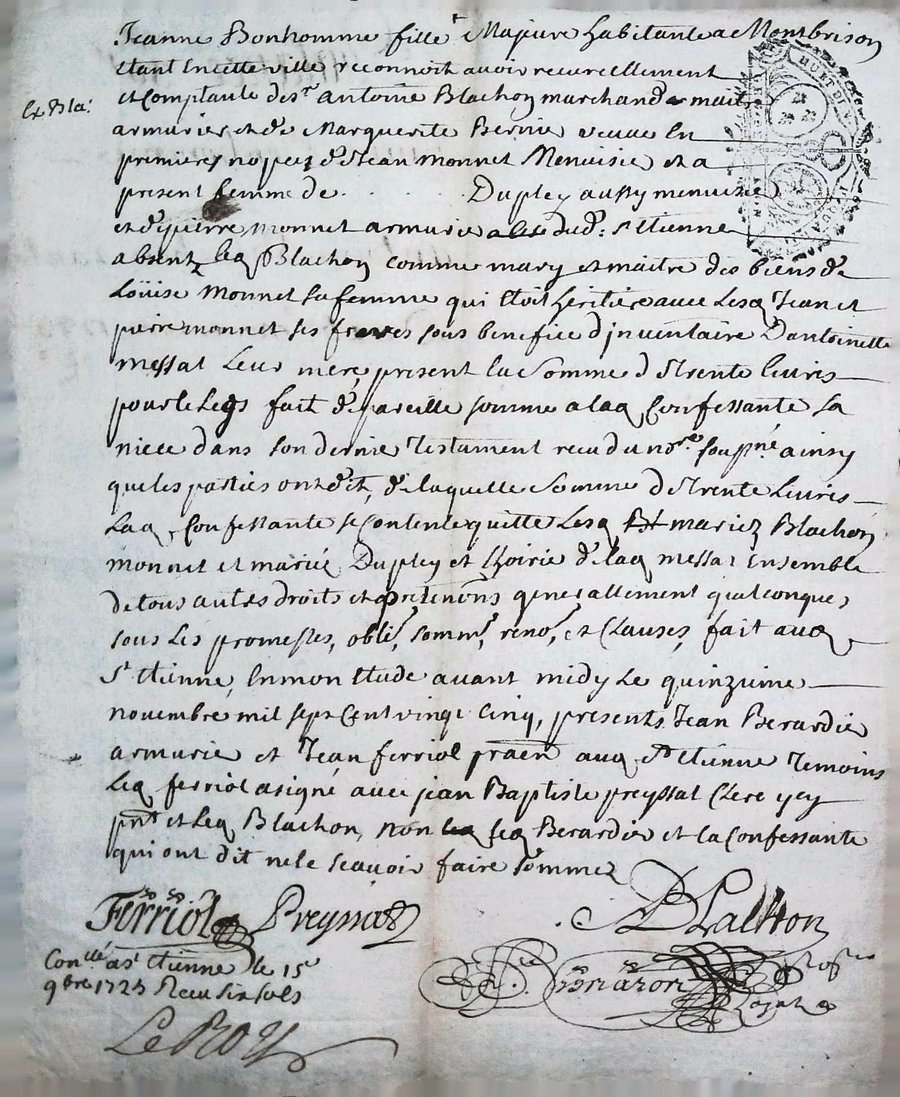 Jeanne Bonhomme fille Majeure habitante a Montbrison
Etant En cette ville reconnoit avoir receu reellement
Ex Bla:
et Comptant de sr antoine Blachon marchand et maitre
armurier et de Marguerite Bernie veuve En
premieres nopces de Jean monnet Menuisier et a
present femme de Dupley aussy menuisier
et de pierre monnet armurier dud: st Etienne
absent, leq Blachon comme mary et maitre des biens de
Loüise monnet sa femme qui Etoit heritiere avec Lesq Jean et
pierre monnet ses freres sous benefice d'inventaire D'antoinette
messat Leur mere, present la somme de Trente livres
pour le Legs fait de pareille somme a laq Confessante sa
niece dans son dernier Testament receu du nore soussné ainsy
que les parties ont dit, de laquelle somme de Trente Livres
Laq Confessante se Contente quitte Lesq mariez Blachon
monnet et mariez Dupley et hoirie de laq messat Ensemble
De tous autres droits et pretentions generallement quelconques
sous Les promesses, oblig, soumis, renon, et Clauses, fait aud
St Etienne, En mon Etude avant midy Le quinzieme
novembre mil sept Cent vingt Cinq, presents Jean Berardier
armurier et Jean ferriol praen aud St Etienne Temoins
Leq ferriol a signé avec jean Baptiste preyssat Clerc icy
pnt et Leq Blachon, non leq Berardier et la Confessante
qui ont dit ne le scavoir faire sommez
Ferriol Preyssat A Blachon
Conllé a st Etienne le 15e
9bre 1725 Receu six sols
Briazon
LeRoy